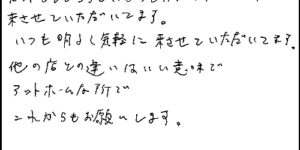 来させていただいてます。
いつも明るく気軽に来させていただいてます
他の店との違いはいい意味で
アットホームな所で
これからもお願いします。